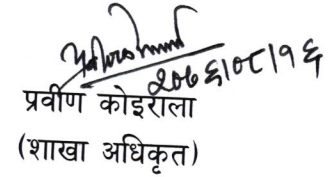 २०७६।०८।१६
प्रवीण कोइराला
(शाखा अधिकृत)